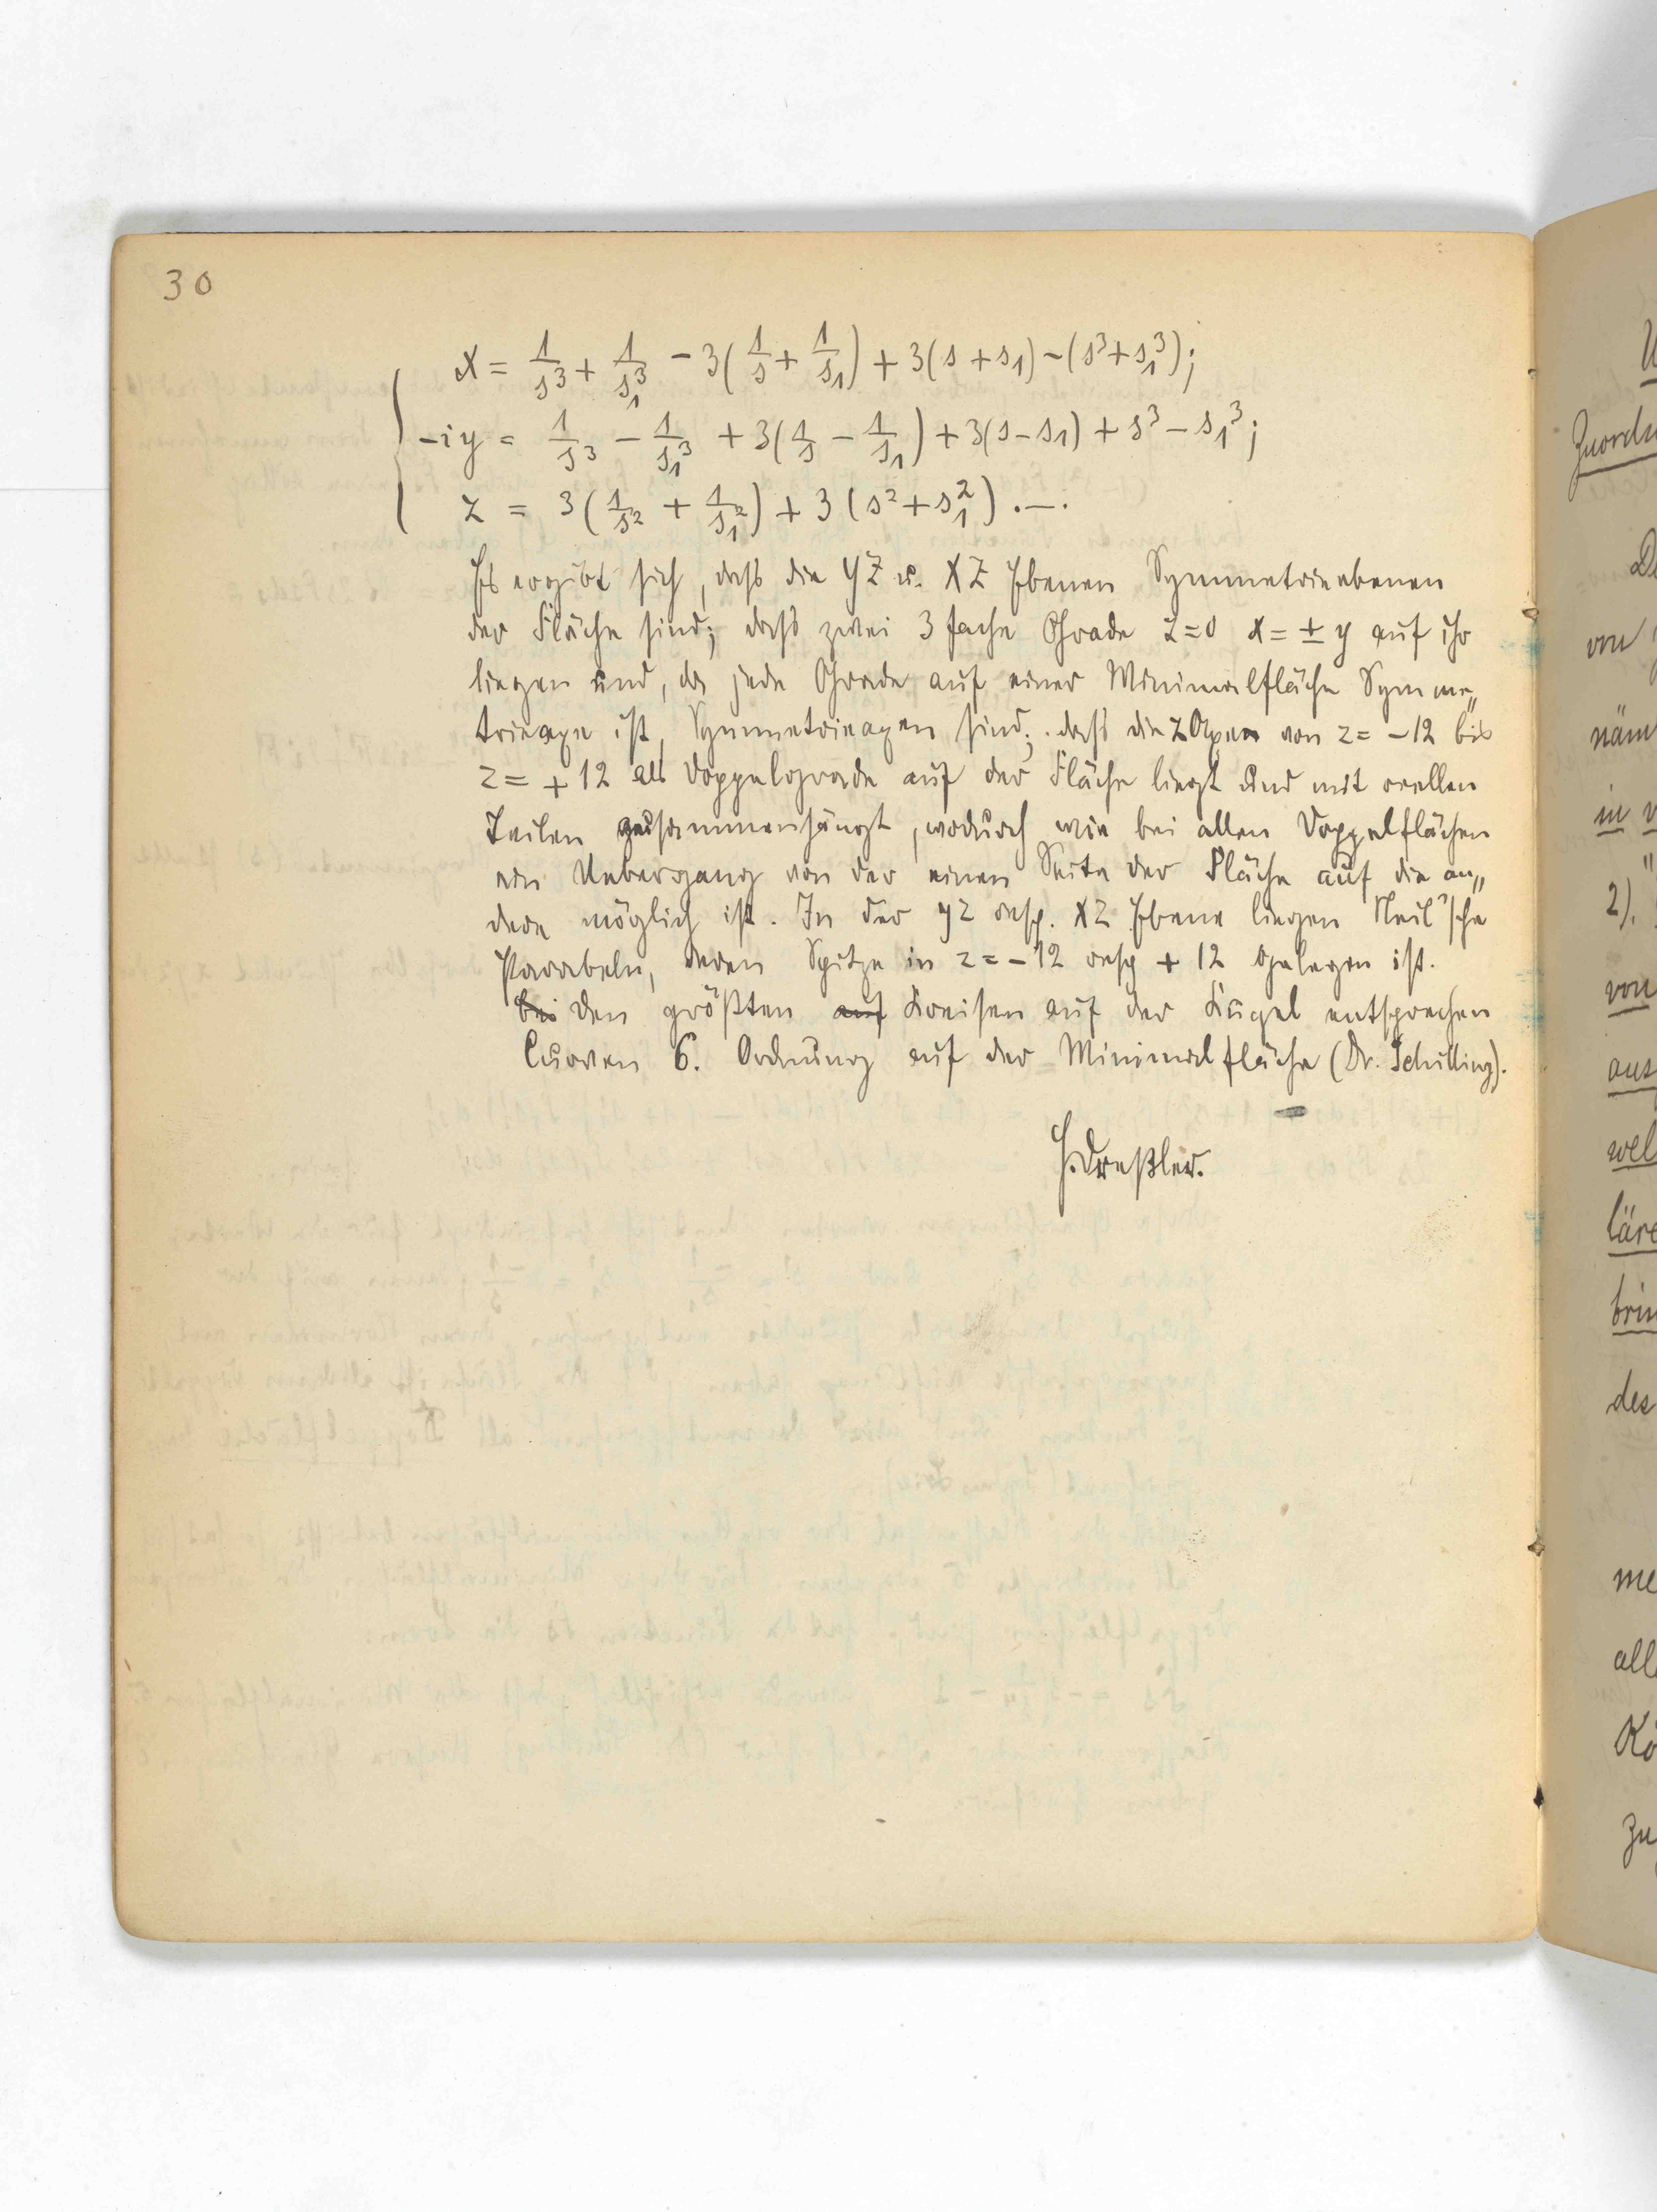 30
x = 1/s³ + 1/s₁³ - 3(1/s + 1/s₁) + 3(s + s₁) - (s³ + s₁³);
-iy = 1/s³ - 1/s₁³ + 3(1/s - 1/s₁) + 3(s - s₁) + s³ - s₁³;
z = 3(1/s² + 1/s₁²) + 3(s² + s₁²). —.
Es ergibt sich, daſs die YZ u. XZ Ebenen Symmetrieebenen
der Fläche sind; daſs zwei 3 fache Grade z=0 x=±y auf ihr
liegen und, da jede Grade auf einer Minimalfläche Symme„
trieaxe ist, Symmetrieaxen sind; daſs die Z Axe von z = -12 bis
z = +12 als Doppelgrade auf der Fläche liegt und mit reellen
Teilen zusammenhängt, wodurch wie bei allen Doppelflächen
ein Uebergang von der einen Seite der Fläche auf die an„
dere möglich ist. In der yz resp. XZ Ebene liegen Neil'sche
Parabeln, deren Spitze in z = -12 resp + 12 gelegen ist.
bei den größten auf Kreisen auf der Kugel entsprechen
Curven 6. Ordnung auf der Minimalfläche (Dr. Schilling).
H. Dreßler.
U
Zuordn
De
von
näm
in v
2).
von
aus
wel
läre
brin
des
me
all
Kö
zu